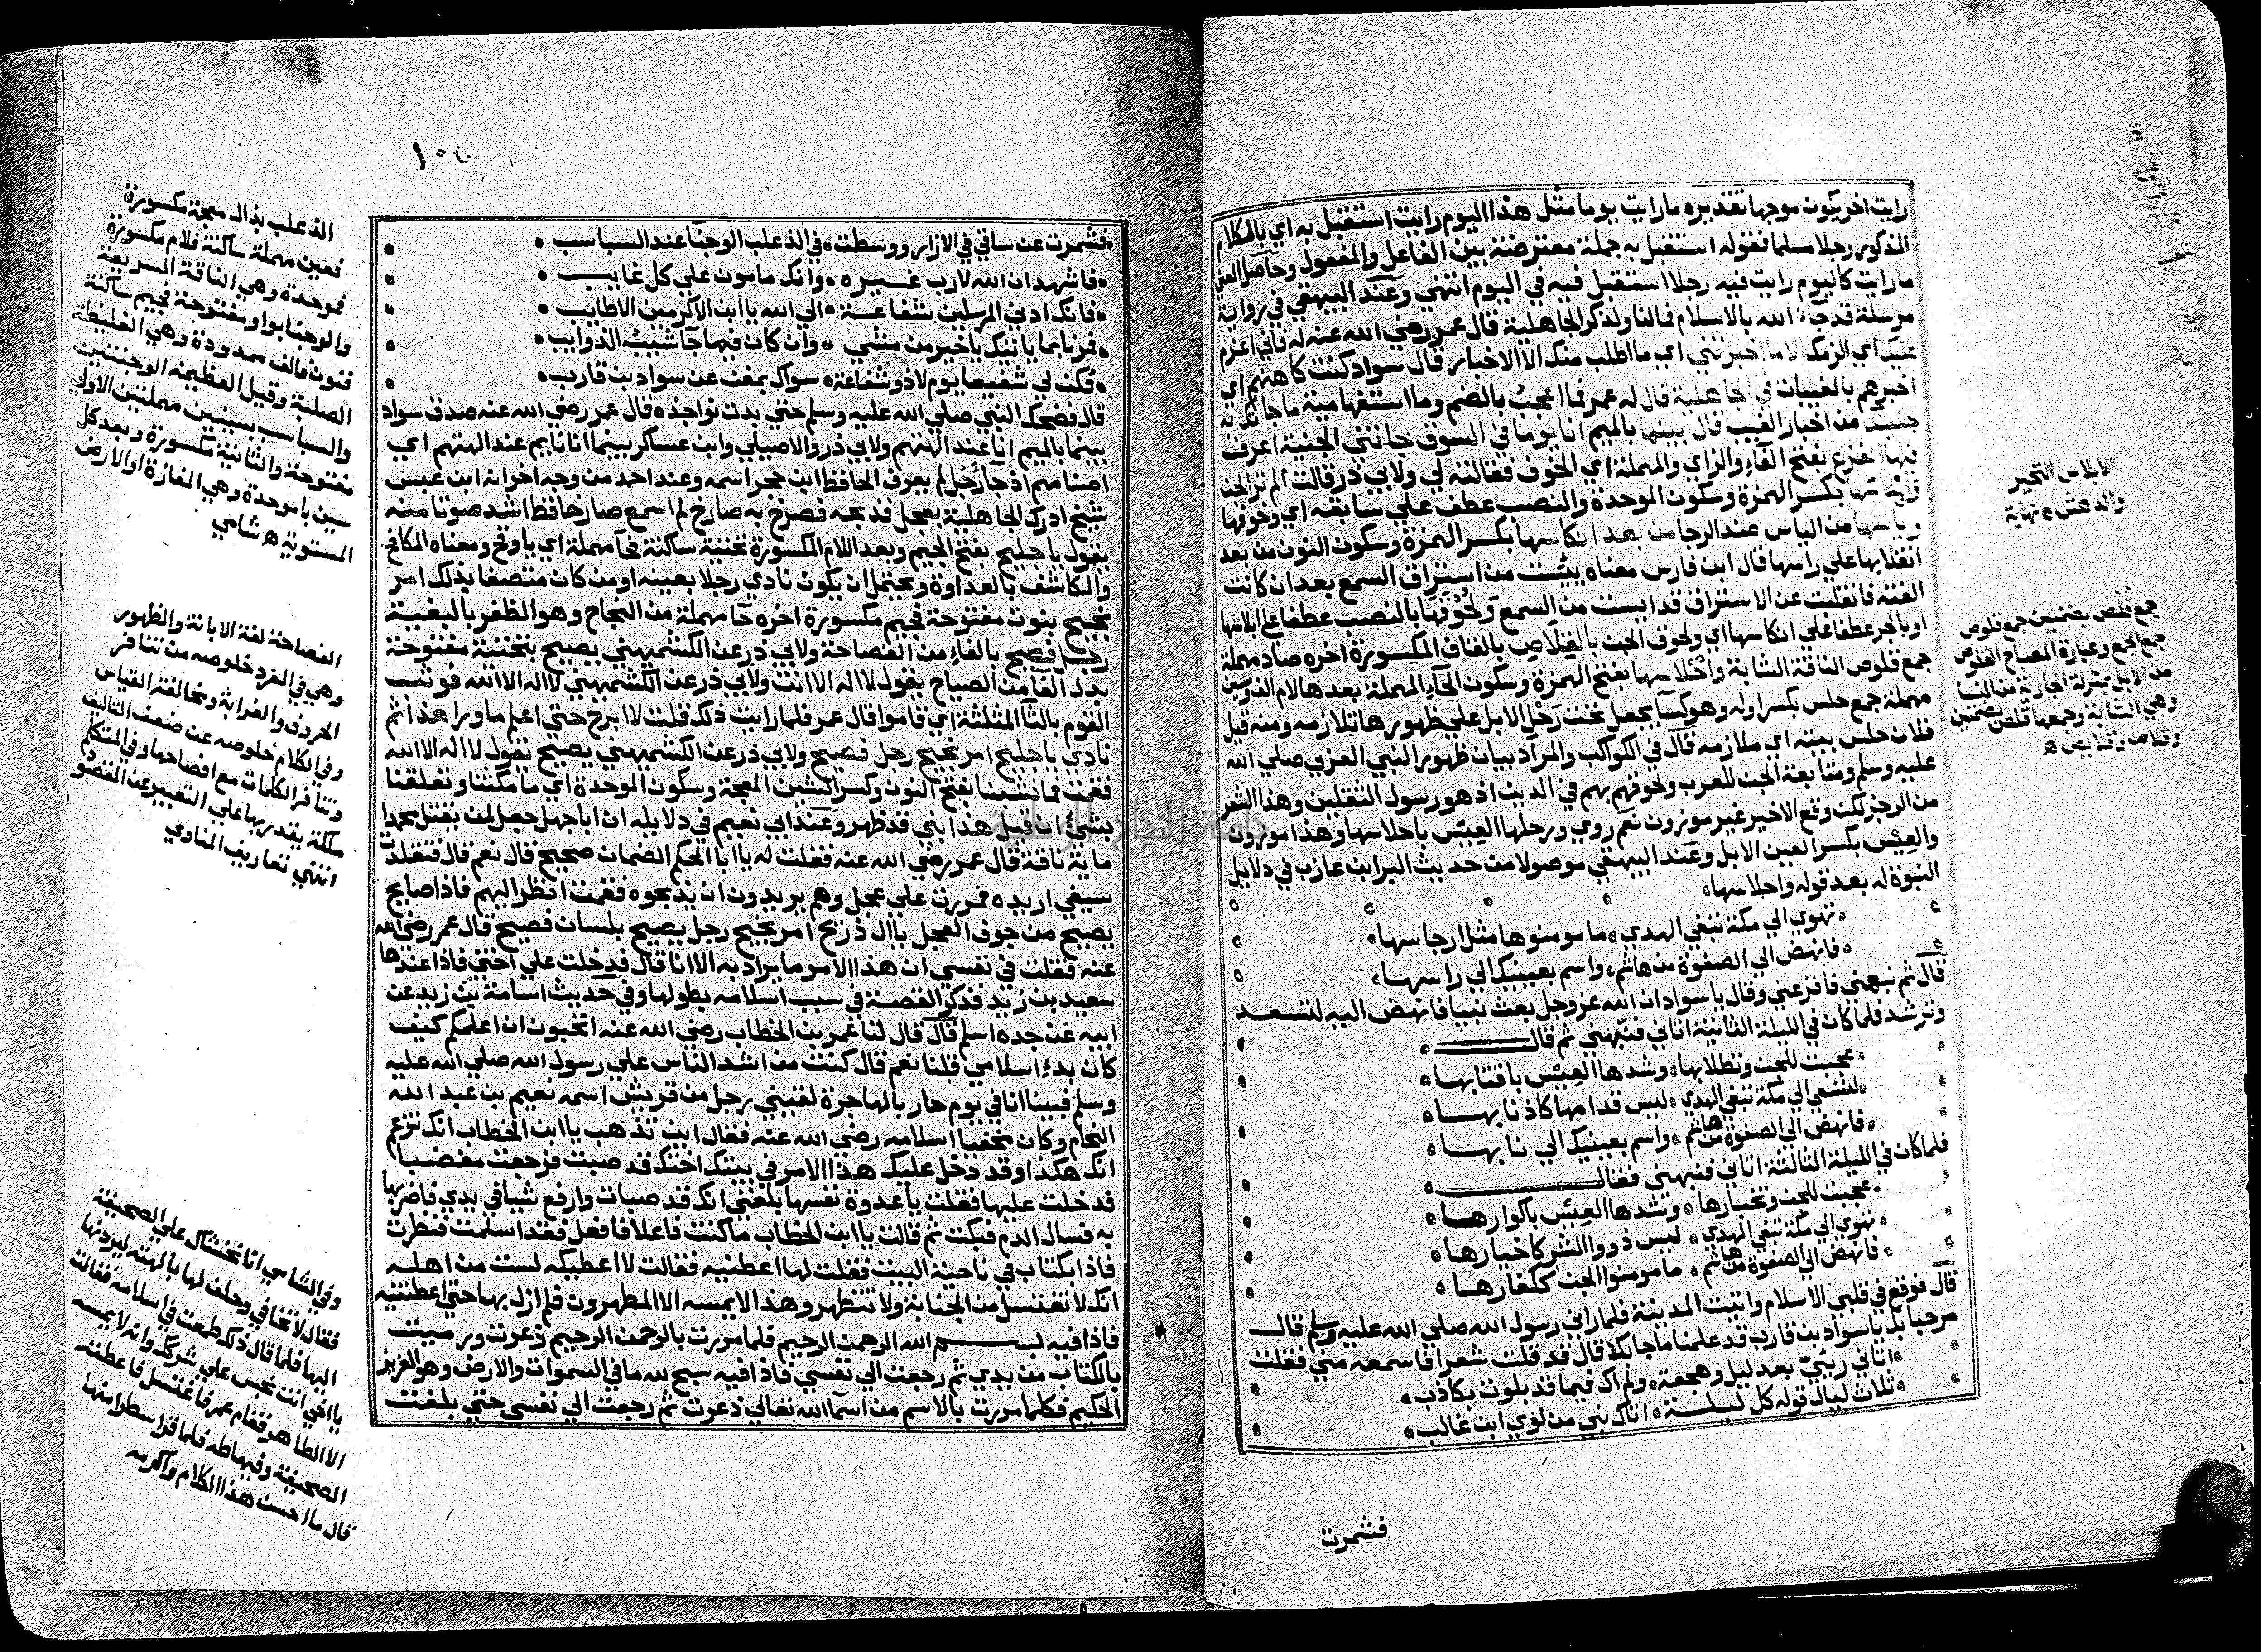 رايت اخر يكون موجها تقديره ما رايت يوما مثل هذا اليوم رايت استقبل به اي بالكلام
المذكور رجلا مسلما فقوله استقبل به جملة معترضة بين الفاعل والمفعول وحاصل المعني
ما رايت كاليوم رايت فيه رجلا استقبل فيه في اليوم انتهي وعند البيهقي في رواية
مرسلة قد جاء الله بالاسلام فمالنا ولذكر الجاهلية قال عمر رضي الله عنه له فاني اعزم
عليك اي الزمك الا ما اخبرتني اي ما اطلب منك الا الاخبار قال سواد كنت كاهنهم اي
اخبرهم بالغيبات في الجاهلية قال له عمر فما اعجب بالضم وما استفهامية ما جاتك به
جنيتك من اخبار الغيب قال بينما بالميم انا يوما في السوق جاءتني الجنية اعرف
فيها الفزع بفتح الفاء والزاي والمهملة اي الخوف فقالت لي ولابي ذر قالت الم تر الجن
وابلاسها بكسر الهمزة وسكون الموحدة والنصب عطف علي سابقه اي وخوفها
وياسها من الياس عند الرجا من بعد انكاسها بكسر الهمزة وسكون النون من بعد
انقلابها علي راسها قال ابن فارس معناه يئست من استراق السمع بعد ان كانت
الفته فانقلبت عن الاستراق قد ايست من السمع ولحوقها بالنصب عطفا علي ابلاسها
او بالجر عطفا علي انكاسها اي ولحوق الجن بالقلاص بالقاف المكسورة اخره صاد مهملة
جمع قلوص الناقة الشابة واحلاسها بفتح الهمزة وسكون الحاء المهملة بعدها لام الف وسين
مهملة جمع حلس بكسر اوله وهو كسا يجعل تحت رحل الابل علي ظهورها تلازمه ومنه قيل
فلان حلس بيته اي ملازمه قال في الكواكب والمراد بيان ظهور النبي العربي صلي الله
عليه وسلم ومتابعة الجن للعرب ولحوقهم بهم في الدين اذ هو رسول الثقلين وهذا الشعر
من الرجز لكن وقع الاخير غير موزون نعم روي ورحلها العيس باحلاسها وهذا موزون
والعيس بكسر العين الابل وعند البيهقي موصولا من حديث البرا ابن عازب في دلايل
النبوة له بعد قوله واحلاسها
تهوي الي مكة تبغي الهدي ما مومنوها مثل ارجاسها
فانهض الي الصفوة من هاشم واسم بعينيك الي راسها
قال ثم نبهني فافزعني وقال يا سواد ان الله عز وجل بعث نبيا فانهض اليه لتسعد
وترشد فلما كان في الليلة الثانية اتاني فنبهني ثم قال
عجبت للجن وتطلابها وشدها العيس باقتابها
لتسعي الي مكة تبغي الهدي ليس قداماها كاذنابها
فانهض الي الصفوة من هاشم واسم بعينيك الي نابها
فلما كان في الليلة الثالثة اتاني فنبهني فقال
عجبت للجن وتخبارها وشدها العيس باكوارها
تهوي الي مكة تبغي الهدي ليس ذووا الشر كاخيارها
فانهض الي الصفوة من هاشم ما مومنوا الجن ككفارها
قال فوقع في قلبي الاسلام واتيت المدينة فلما راني رسول الله صلي الله عليه وسلم قال
مرحبا بك يا سواد بن قارب قد علمنا ما جا بك قال قد قلت شعرا فاسمعه مني فقلت
اتاني رئيي بعد ليل وهجعة ولم اك فيما قد بلوت بكاذب
ثلاث ليال قوله كل ليلة اتاك نبي من لوي ابن غالب
فشمرت
الابلاس التحير
والدهش نهاية
جمع قلص بضمتين جمع قلوص
جمع الجمع وعبارة المصباح القلوص
من الابل بمنزلة الجارية من النسا
وهي الشابة وجمعها قلص بضمتين
وقلاص وقلايص
فشمرت عن ساقي في الازار ووسطت في الذعلب الوجنا عند السباسب
فاشهد ان الله لا رب غيره وانك مامون علي كل غايب
فانك ادني المرسلين شفاعة الي الله يا ابن الاكرمين الاطايب
فمرنا بما ياتيك يا خير من مشي وان كان فيما جا شيب الذوايب
فكن لي شفيعا يوم لا ذو شفاعة سواك بمغن عن سواد بن قارب
قال فضحك النبي صلي الله عليه وسلم حتي بدت نواجذه قال عمر رضي الله عنه صدق سواد
بينما بالميم انا عند الهتهم ولابي ذر والاصيلي وابن عساكر بينما انا نايم عند الهتهم اي
اصنامهم اذ جا رجل لم يعرف الحافظ ابن حجر اسمه وعند احمد من وجه اخر انه ابن عبس
شيخ ادرك الجاهلية بعجل فذبحه فصرخ به صارخ لم اسمع صارخا قط اشد صوتا منه
يقول يا جليح بفتح الجيم وبعد اللام المكسورة تحتية ساكنة فحاء مهملة اي يا وقح ومعناه المكافح
والمكاشف بالعداوة ويحتمل ان يكون نادي رجلا بعينه او من كان متصفا بذلك امر
نجيح بنون مفتوحة فجيم مكسورة اخره حا مهملة من النجاح وهو الظفر بالبغية
رجل فصيح بالفاء من الفصاحة ولابي ذر عن الكشميهني يصيح بتحتية مفتوحة
بدل الفا من الصياح يقول لا اله الا انت ولابي ذر عن الكشميهني لا اله الا الله فوثب
القوم بالثا المثلثة اي قاموا قال عمر فلما رايت ذلك قلت لا ابرح حتي اعلم ما ورا هذا ثم
نادي يا جليح امر نجيح رجل فصيح ولابي ذر عن الكشميهني يصيح يقول لا اله الا الله
فقمت فما نشبنا بفتح النون وكسر الشين المعجمة وسكون الموحدة اي ما مكثنا وتعلقنا
بشئ ان قيل هذا نبي قد ظهر وعند ابي نعيم في دلايله ان ابا جهل جعل لمن يقتل محمدا
ماية ناقة قال عمر رضي الله عنه فقلت له يا ابا الحكم الضمان صحيح قال نعم قال فتقلدت
سيفي اريده فمررت علي عجل وهم يريدون ان يذبحوه فقمت انظر اليهم فاذا صايح
يصيح من جوف العجل يا ال ذريح امر نجيح رجل يصيح بلسان فصيح قال عمر رضي الله
عنه فقلت في نفسي ان هذا الامر ما يراد به الا انا قال فدخلت علي اختي فاذا عندها
سعيد بن زيد فذكر القصة في سبب اسلامه بطولها وفي حديث اسامة بن زيد عن
ابيه عن جده اسلم قال قال لنا عمر بن الخطاب رضي الله عنه اتحبون ان اعلمكم كيف
كان بدء اسلامي قلنا نعم قال كنت من اشد الناس علي رسول الله صلي الله عليه
وسلم فبينا انا في يوم حار بالهاجرة لقيني رجل من قريش اسمه نعيم بن عبد الله
النحام وكان مخفيا اسلامه رضي الله عنه فقال اين تذهب يا ابن الخطاب انك تزعم
انك هكذا وقد دخل عليك هذا الامر في بيتك اختك قد صبت فرجعت مغضبا
فدخلت عليها فقلت يا عدوة نفسها بلغني انك قد صبات وارفع شيا في يدي فاضربها
به فسال الدم فبكت ثم قالت يا ابن الخطاب ما كنت فاعلا فافعل فقد اسلمت فنظرت
فاذا بكتاب في ناحية البيت فقلت لها اعطنيه فقالت لا اعطيكه لست من اهله
انك لا تغتسل من الجنابة ولا تتطهر وهذا لا يمسه الا المطهرون فلم ازل بها حتي اعطتنيه
فاذا فيه بسم الله الرحمن الرحيم فلما مررت بالرحمن الرحيم ذعرت ورميت
بالكتاب من يدي ثم رجعت الي نفسي فاذا فيه سبح لله ما في السموات والارض وهو العزيز
الحكيم فكلما مررت بالاسم من اسما الله تعالي ذعرت ثم رجعت الي نفسي حتي بلغت
الذعلب بذال معجمة مكسورة
فعين مهملة ساكنة فلام مكسورة
فموحدة وهي الناقة السريعة
والوجنا بواو مفتوحة فجيم ساكنة
فنون فالف ممدودة وهي الغليظة
الصلبة وقيل العظيمة الوجنتين
والسباسب بسينين مهملتين الاولي
مفتوحة والثانية مكسورة وبعد كل
سين باموحدة وهي المفازة او الارض
المستوية شامي
الفصاحة لغة الابانة والظهور
وهي في المفرد خلوصه من تنافر
الحروف والغرابة ومخالفة القياس
وفي الكلام خلوصه عن ضعف التاليف
وتنافر الكلمات مع افصاحها وفي المتكلم
ملكة يقتدر بها علي التعبير عن المقصود
انتهي تعاريف المناوي
وفي الشامي انا نخشاك علي الصحيفة
فقال لا تخافي وحلف لها بالهته ليردنها
اليها فلما قال ذلك طمعت في اسلامه فقالت
يا اخي انت نجس علي شركك وانه لا يمسه
الا الطاهر فقام عمر فاغتسل فاعطته
الصحيفة وفيها طه فلما قرا سطرا منها
قال ما احسن هذا الكلام واكرمه